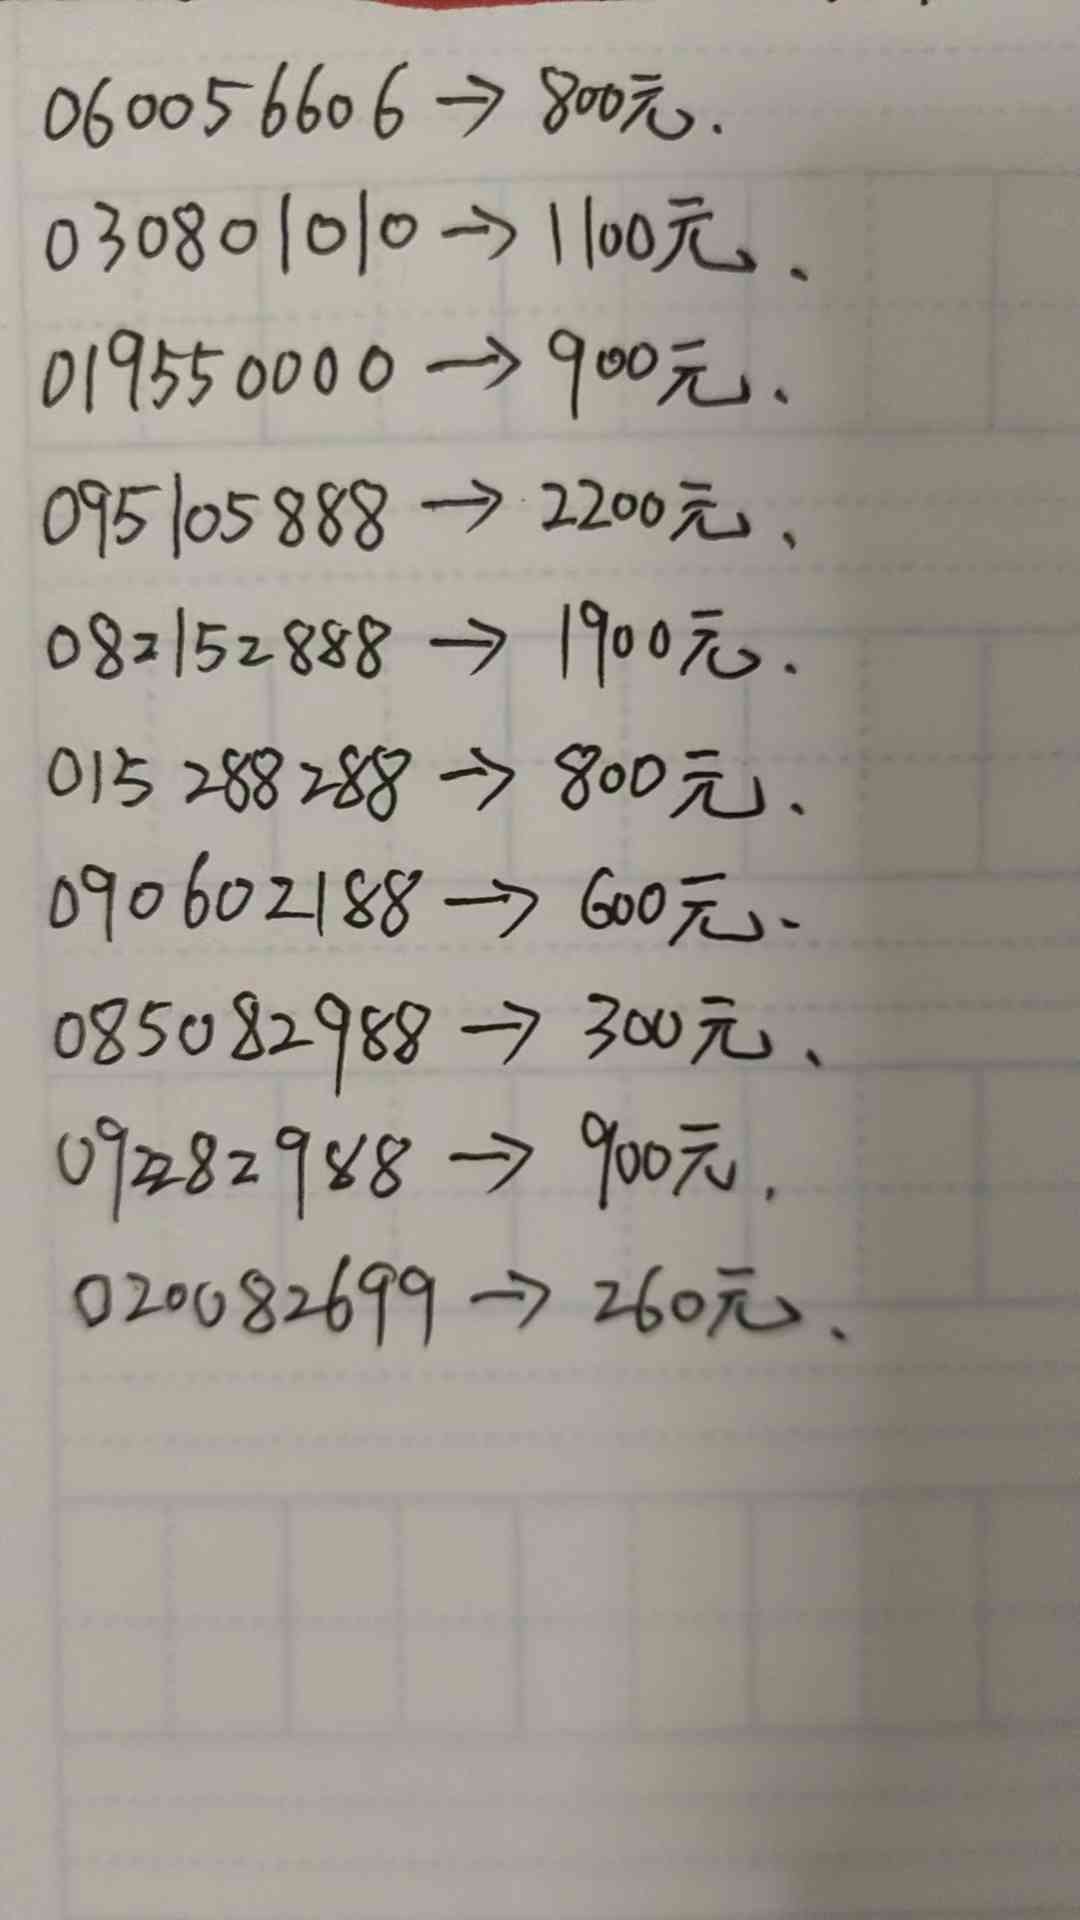 060056606→800元.
030801010→1100元、
019550000→900元.
095105888→2200元、
082152888→1900元.
015 288288→800元、
090602188→600元.
085082988→300元、
092282988→900元.
020082699→260元、